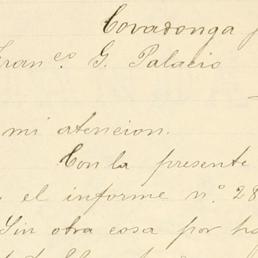 Covadonga
Franco. G. Palacio
mi atencion.
Con la presente
el informe no. 28
Sin otra cosa por